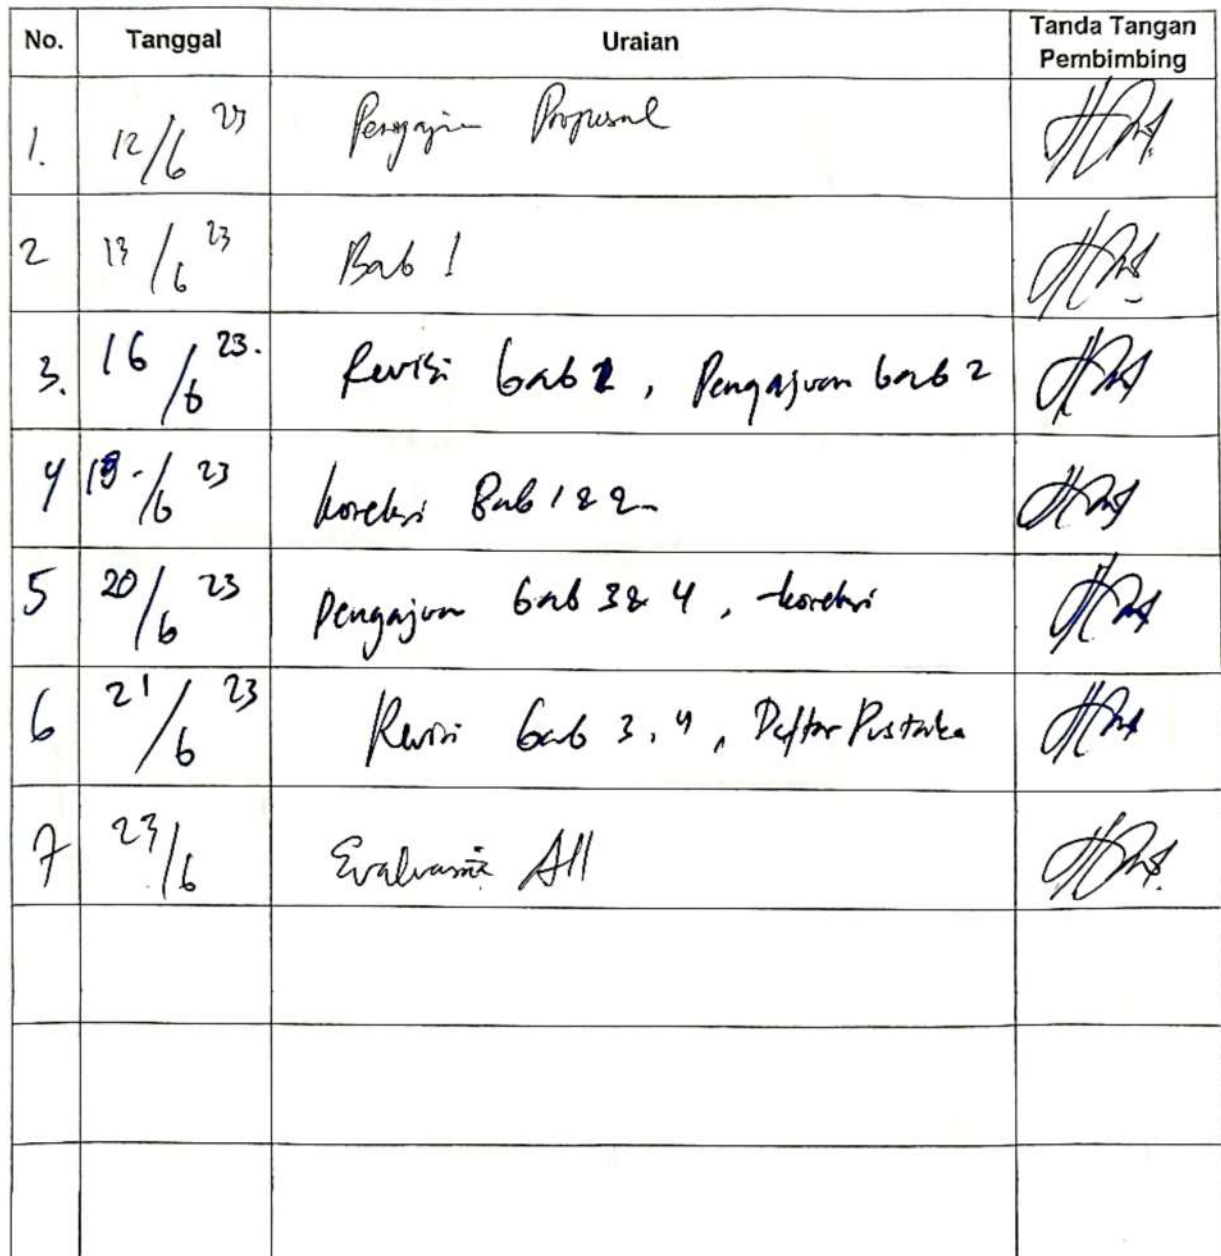 No. Tanggal Uraian Tanda Tangan
Pembimbing
1. 12/6 23 Pengajuan Proposal
2 13/6 23 Bab 1
3. 16/6 23. Revisi bab 1, Pengajuan bab 2
4 19/6 23 koreksi Bab 1 & 2
5 20/6 23 Pengajuan bab 3 & 4, koreksi
6 21/6 23 Revisi bab 3, 4, Daftar Pustaka
7 23/6 Evaluasi All